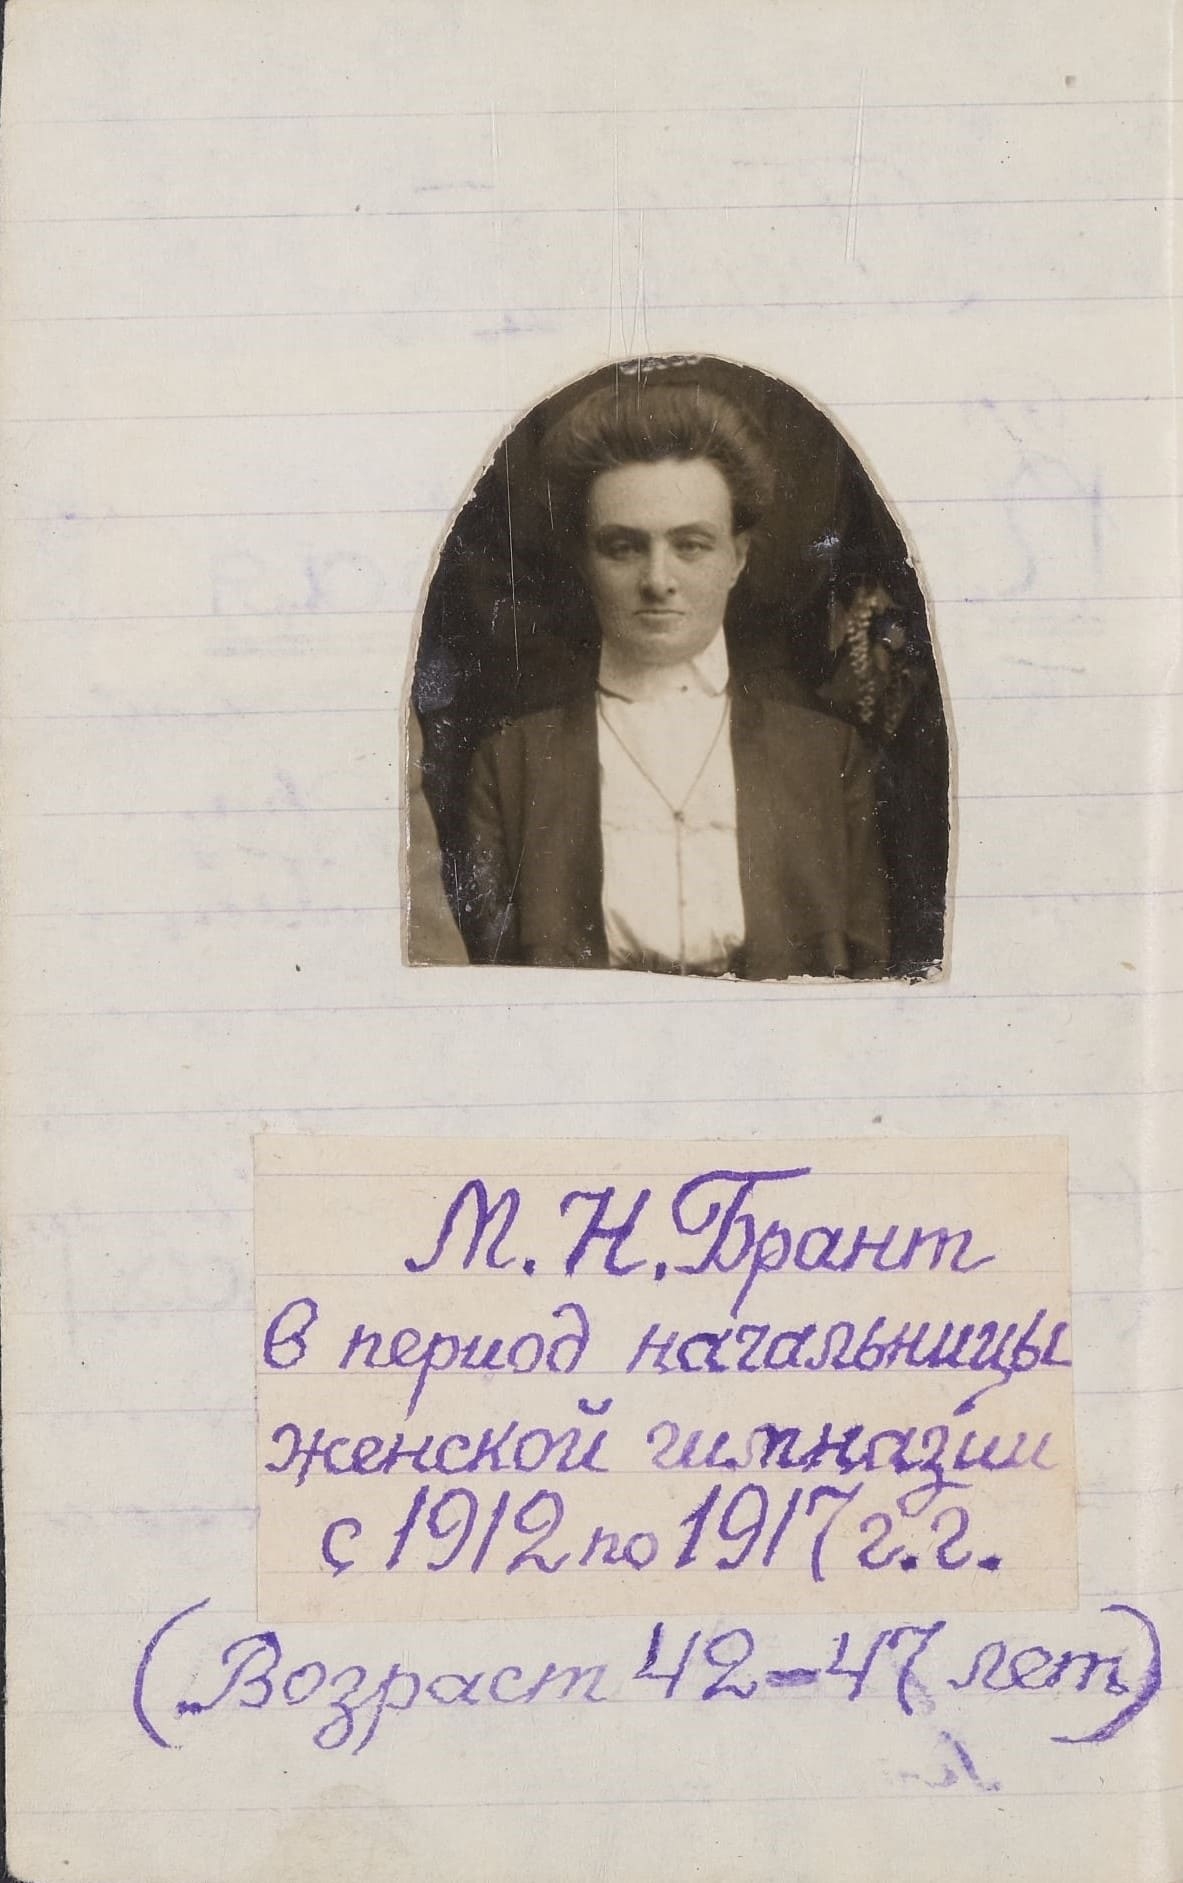 М. Н. Брант
в период начальницы
женской гимназии
с 1912 по 1917 г. г.
(Возраст 42-47 лет)